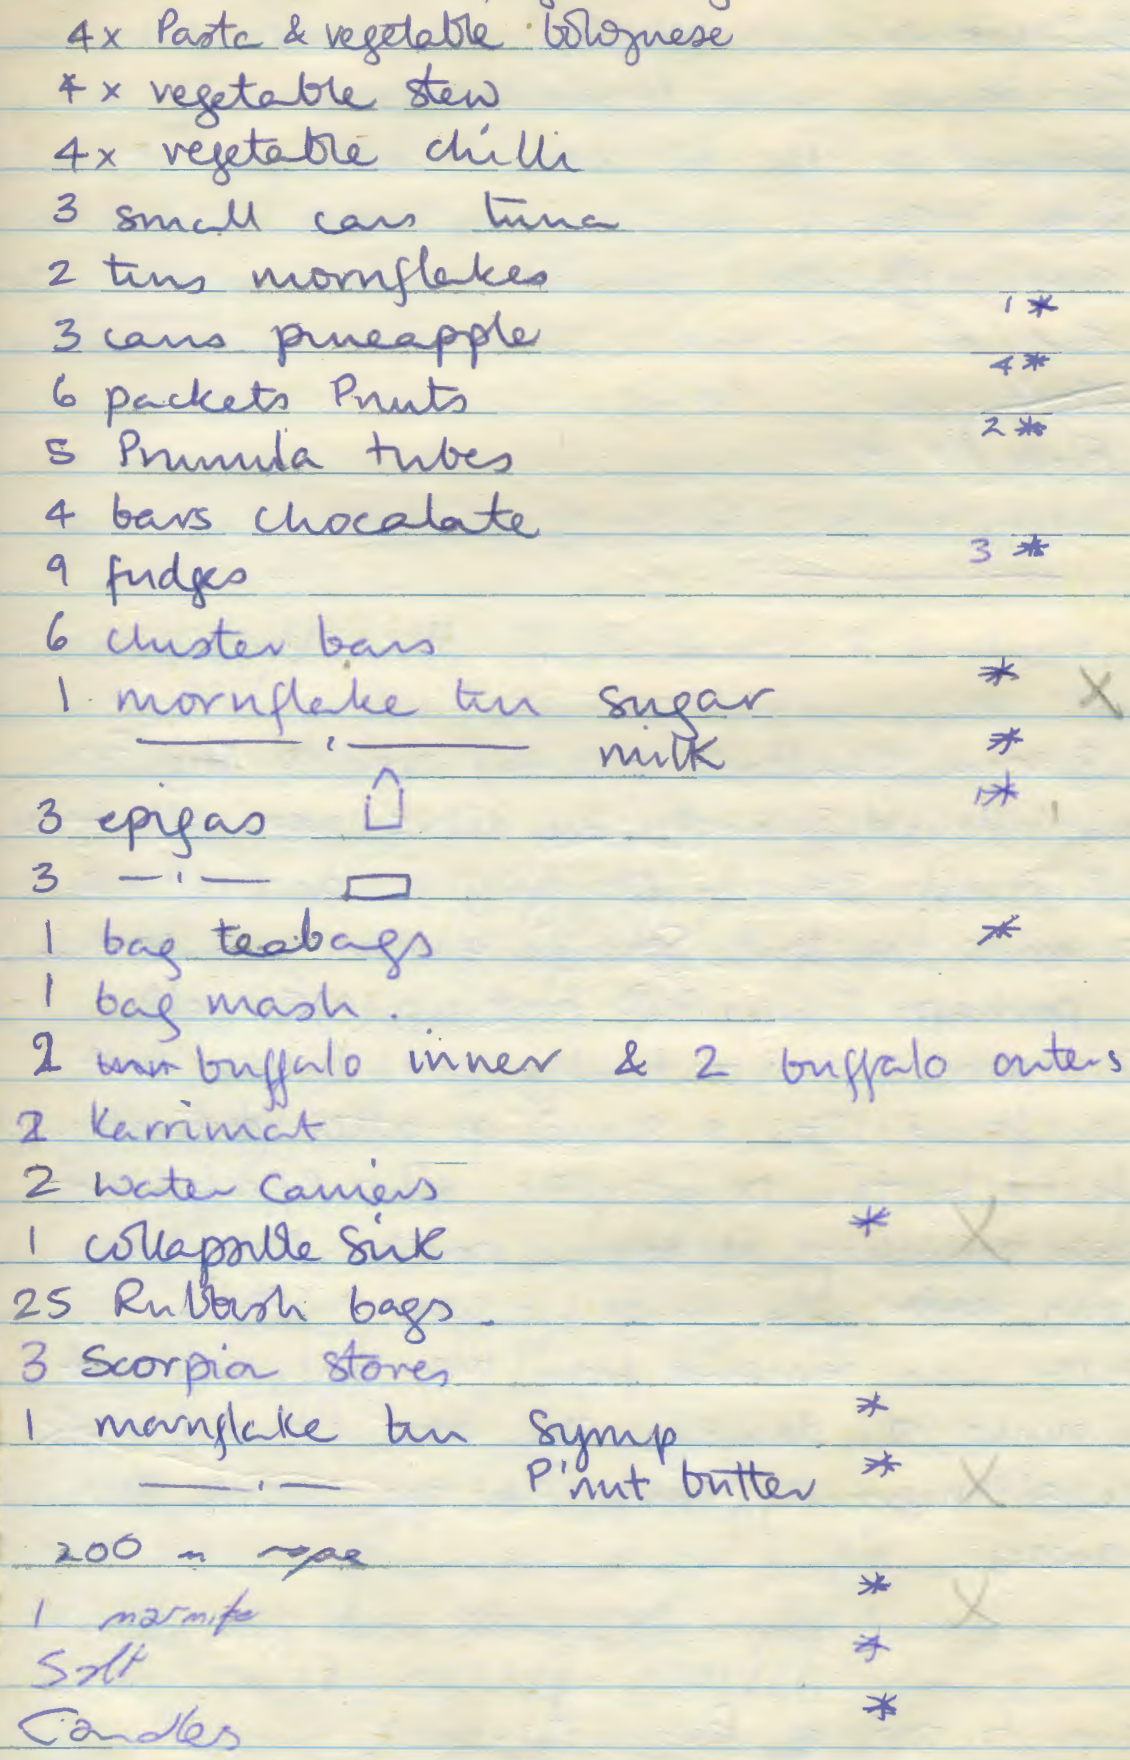 4x Pasta & vegetable bolognese
4 x vegetable stew
4x vegetable chilli
3 small cans tuna
2 tins mornflakes
3 cans pineapple 1 *
6 packets Pnuts 4 *
5 Primula tubes 2 *
4 bars chocalate
9 fudges 3 *
6 cluster bars
1 mornflake tin sugar * X
— " — milk *
3 epigas 1 *
3 — " —
1 bag teabags *
1 bag mash.
2 buffalo inner & 2 buffalo outers
2 Karrimat
2 water carriers
1 collapsible sink * X
25 Rubbish bags.
3 Scorpion stoves
1 mornflake tin syrup *
— " — P'nut butter * X
200 m rope
1 marmite * X
Salt *
Candles *